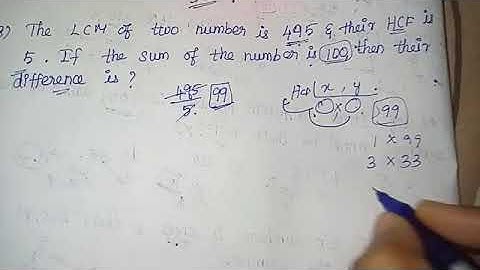 3) The LCM of two number is 495 & their HCF is
5. If the sum of the number is 100 then their
difference is?
495 99
5
HCF x, y.
99
1 x 99
3 x 33